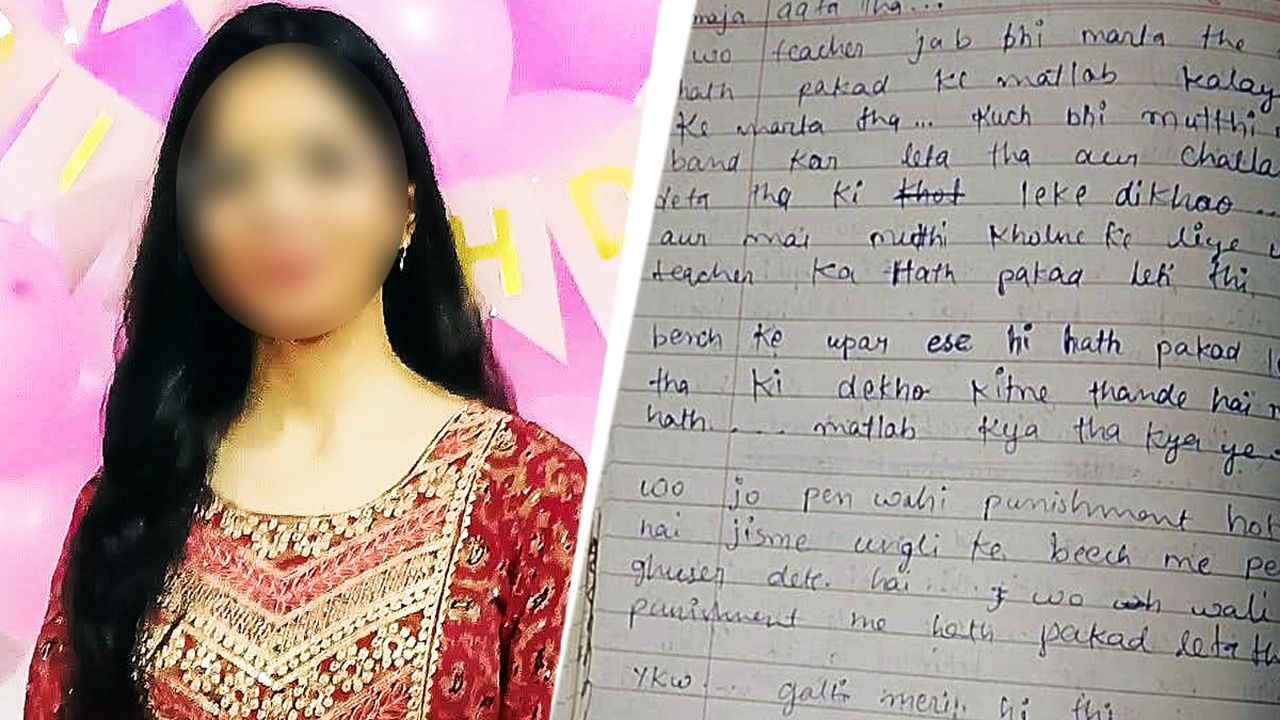 I
H
D
maja aata tha...
wo teacher jab bhi marta the
hath pakad ke matlab kalay
ke marta tha... Kuch bhi mutthi
band kar leta tha aur Challa
deta tha ki thot leke dikhao ...
aur mai mutthi kholne ke liye
teacher ka Hath pakad leti thi
bench ke upar ese hi hath pakad
tha ki dekho kitne thande hai
hath .... matlab kya tha kya ye
woo jo pen wahi punishment hot
hai jisme ungli ke beech me pe
ghuser dete hai .... wo wali
punishment me hath pakad leta th
YKW ... galti meri hi thi